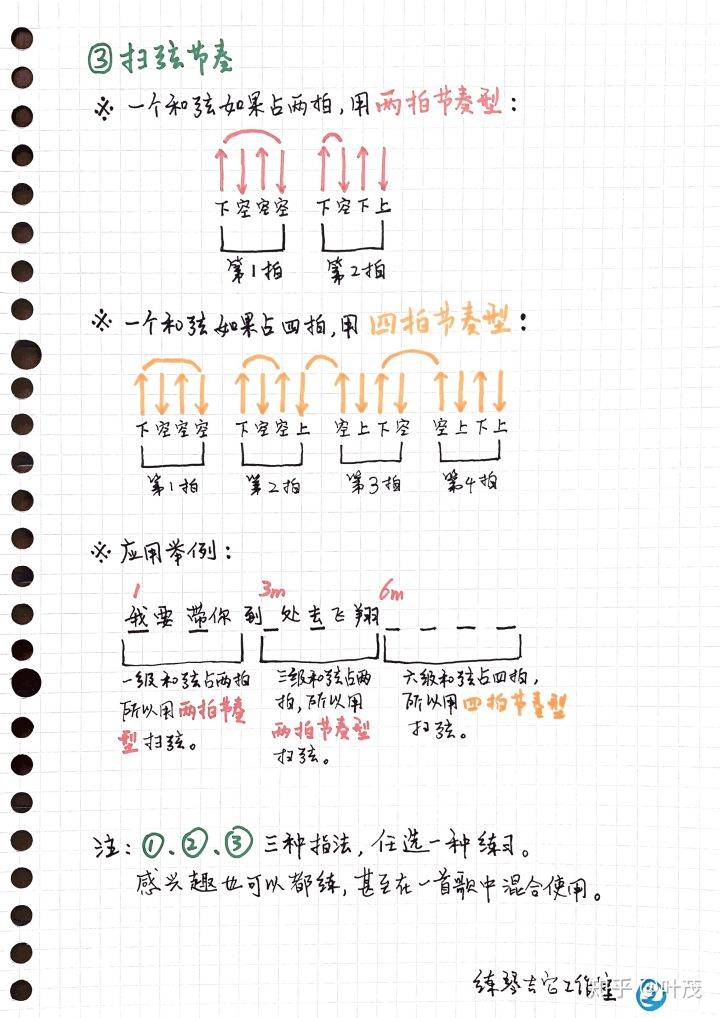 ③扫弦节奏
※ 一个和弦如果占两拍,用两拍节奏型:
下空空空 下空下上
第1拍 第2拍
※ 一个和弦如果占四拍,用四拍节奏型:
下空空空 下空空上 空上下空 空上下上
第1拍 第2拍 第3拍 第4拍
※ 应用举例:
1 3m 6m
我要带你到处去飞翔
一级和弦占两拍
所以用两拍节奏
型扫弦。
三级和弦占两
拍,所以用
两拍节奏型
扫弦。
六级和弦占四拍,
所以用四拍节奏型
扫弦。
注:①、②、③三种指法,任选一种练习。
感兴趣也可以都练,甚至在一首歌中混合使用。
练琴吉它工作室 ②
知乎 @叶茂